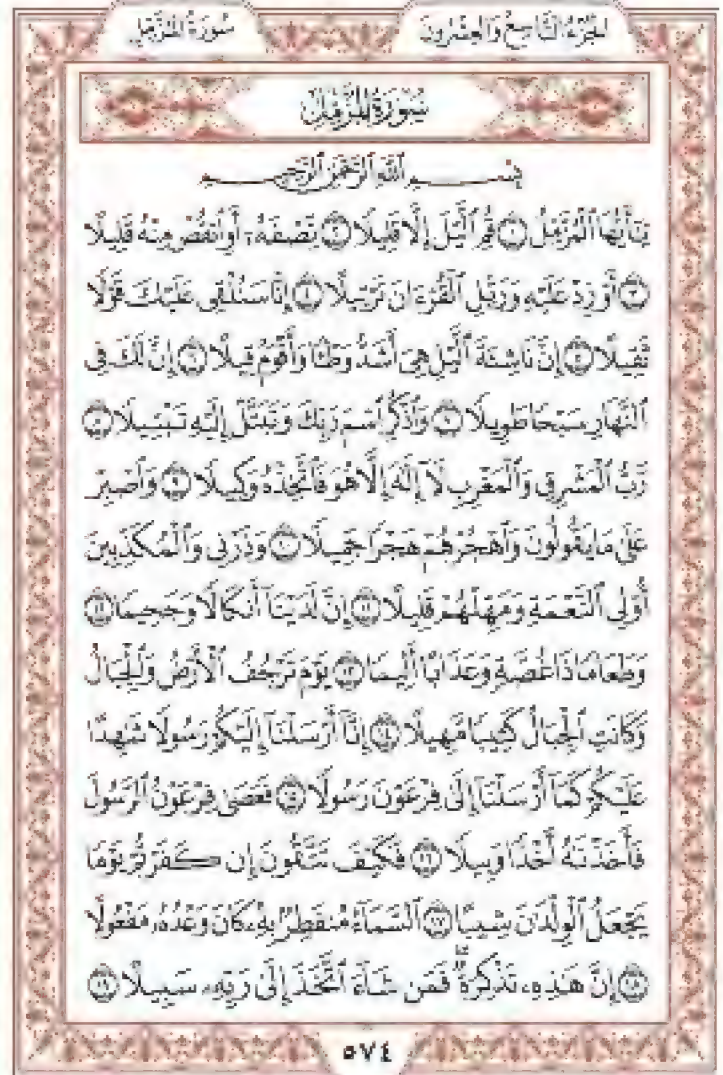 سُورَةُ الْمُزَّمِّلِ
الجُزْءُ التَّاسِعُ وَالعِشْرُونَ
سُورَةُ المُزَّمِّلِ
بِسْمِ ٱللَّهِ ٱلرَّحْمَٰنِ ٱلرَّحِيمِ
يَٰٓأَيُّهَا ٱلْمُزَّمِّلُ ١ قُمِ ٱلَّيْلَ إِلَّا قَلِيلًا ٢ نِّصْفَهُۥٓ أَوِ ٱنقُصْ مِنْهُ قَلِيلًا
٣ أَوْ زِدْ عَلَيْهِ وَرَتِّلِ ٱلْقُرْءَانَ تَرْتِيلًا ٤ إِنَّا سَنُلْقِى عَلَيْكَ قَوْلًا
ثَقِيلًا ٥ إِنَّ نَاشِئَةَ ٱلَّيْلِ هِىَ أَشَدُّ وَطْـًٔا وَأَقْوَمُ قِيلًا ٦ إِنَّ لَكَ فِى
ٱلنَّهَارِ سَبْحًا طَوِيلًا ٧ وَٱذْكُرِ ٱسْمَ رَبِّكَ وَتَبَتَّلْ إِلَيْهِ تَبْتِيلًا ٨
رَّبُّ ٱلْمَشْرِقِ وَٱلْمَغْرِبِ لَآ إِلَٰهَ إِلَّا هُوَ فَٱتَّخِذْهُ وَكِيلًا ٩ وَٱصْبِرْ
عَلَىٰ مَا يَقُولُونَ وَٱهْجُرْهُمْ هَجْرًا جَمِيلًا ١٠ وَذَرْنِى وَٱلْمُكَذِّبِينَ
أُو۟لِى ٱلنَّعْمَةِ وَمَهِّلْهُمْ قَلِيلًا ١١ إِنَّ لَدَيْنَآ أَنكَالًا وَجَحِيمًا ١٢
وَطَعَامًا ذَا غُصَّةٍ وَعَذَابًا أَلِيمًا ١٣ يَوْمَ تَرْجُفُ ٱلْأَرْضُ وَٱلْجِبَالُ
وَكَانَتِ ٱلْجِبَالُ كَثِيبًا مَّهِيلًا ١٤ إِنَّآ أَرْسَلْنَآ إِلَيْكُمْ رَسُولًا شَٰهِدًا
عَلَيْكُمْ كَمَآ أَرْسَلْنَآ إِلَىٰ فِرْعَوْنَ رَسُولًا ١٥ فَعَصَىٰ فِرْعَوْنُ ٱلرَّسُولَ
فَأَخَذْنَٰهُ أَخْذًا وَبِيلًا ١٦ فَكَيْفَ تَتَّقُونَ إِن كَفَرْتُمْ يَوْمًا
يَجْعَلُ ٱلْوِلْدَٰنَ شِيبًا ١٧ ٱلسَّمَآءُ مُنفَطِرٌۢ بِهِۦ كَانَ وَعْدُهُۥ مَفْعُولًا
١٨ إِنَّ هَٰذِهِۦ تَذْكِرَةٌ ۖ فَمَن شَآءَ ٱتَّخَذَ إِلَىٰ رَبِّهِۦ سَبِيلًا ١٩
٥٧٤